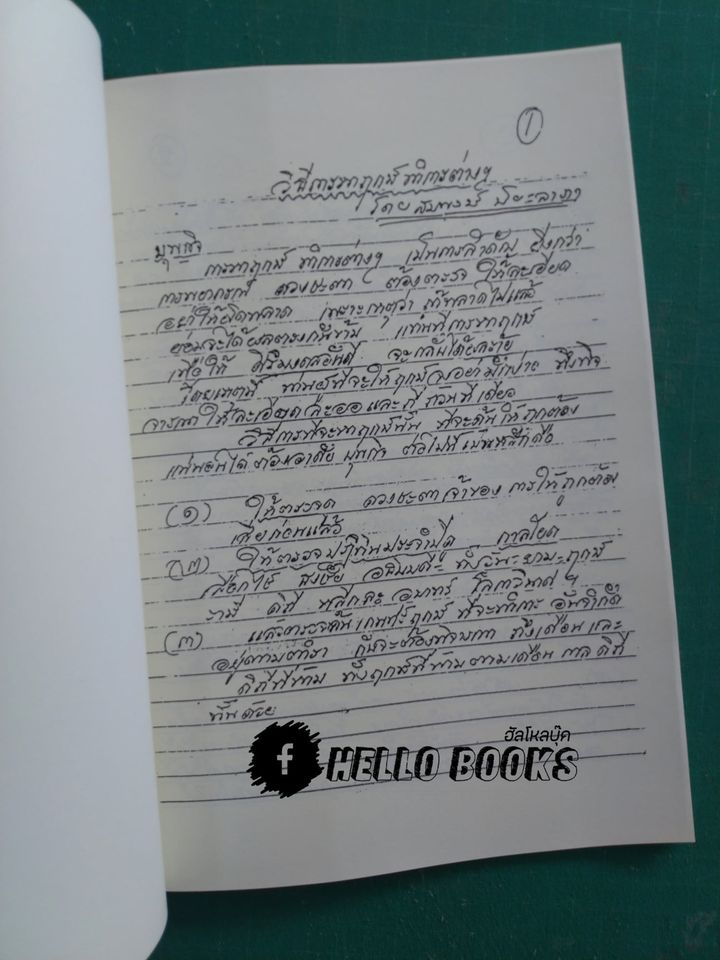 ๑
วิธีการหาฤกษ์ ทำการต่างๆ
โดย
บุพกิจ
การหาฤกษ์ ทำการต่างๆ เป็นการสำคัญ ยิ่งกว่า
การพยากรณ์ ดวงชะตา ต้องตรวจ ให้ละเอียด
อย่าให้ผิดพลาด เพราะเหตุว่า ถ้าพลาดไปแล้ว
ย่อมจะได้ผลตรงกันข้าม แทนที่การหาฤกษ์
เพื่อให้ ดีมีมงคล จะกลับได้ผลร้าย
โดยเหตุนี้ ท่านผู้ที่จะให้ฤกษ์ พึงพิจ
จารณาให้ละเอียดละออและถี่ถ้วนทีเดียว
วิธีการที่จะหาฤกษ์นั้น ที่จะค้นให้ถูกต้อง
แน่นอนได้ ต้องอาศัย บุพกิจ ต่อไปนี้เป็นหลักคือ
(๑) ให้ตรวจดู ดวงชะตาเจ้าของ การให้ถูกต้อง
เสียก่อนแล้ว
(๒) ให้ตรวจปฏิทินประจำปีดู กาลโยค
ธงชัย อธิบดี วัน ยาม ฤกษ์
ราศี ดิถี
(๓) แล้วตรวจค้นเกณฑ์ฤกษ์ ที่จะทำการ
อยู่ตามตำรา ก็จะต้อง ทั้งเดือนและ
ดิถีที่ห้าม ทั้งฤกษ์ที่ห้ามตามเดือน ดิถี
นั้นด้วย
ฮัลโหลบุ๊ค
f HELLO BOOKS